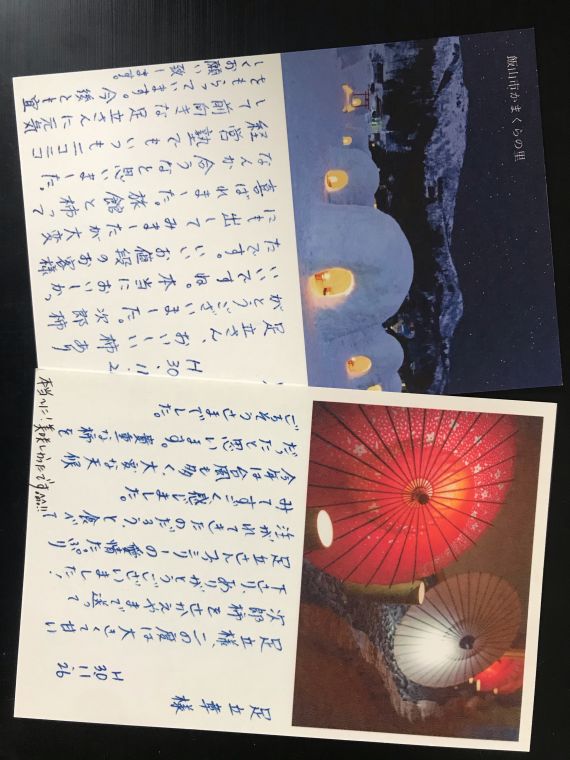 飯山市かまくらの里
H30.11.2
足立さん、おいしい柿あり
がとうございました。次郎柿
いいですね。本当においしかっ
たです。いいお値段のお客様
にも出してみましたが大変
喜ばれました。旅館と柿って
なんか合うなと思いました。
経営塾でもいつもニコニコ
して前向きな足立さんに元気
をもらっています。今後とも宜
しくお願い致します。
足立華様
H30.11.26
足立様、この度は大きくて甘い
次郎柿をさかえやまで送って
下さり、ありがとうございました!
足立さんファミリーの愛情たっぷり
注がれてきたのだろう、と食べて
みてすごく感じました。
今年は台風も多く、大変な天候
だったと思います。貴重な柿を
ごちそうさまでした。
本当〜に!美味しかったです!!